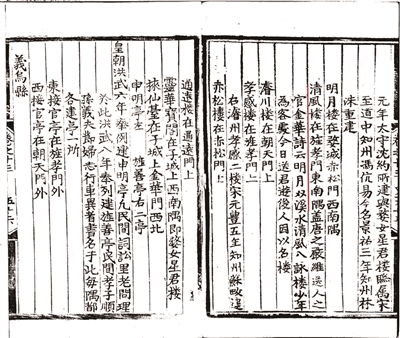 元年太守沈約所建與婺女星君樓臨寓宋
至道中知州馮伉易今名景祐三年知州林
洙重建
明月樓在婺城赤松門西南隅
清風樓在旌孝門東南隅盖唐之嚴維送人之
官金華詩云明月雙溪水清風八詠樓少年
為客處今日送君遊後人因以名樓
濬川樓在朝天門上
孝感樓在旌孝門上
右濬州孝感二樓宋元豐五年知州蘇 建
赤松樓在赤松門上
通遠樓在通遠門上
靈華寶閣在子城上西南隅即婺女星君樓
採仙堂在子城上金華門西北
申明亭 旌善亭右二亭
皇朝洪武六年奉例建申明亭凡民間詞訟里老問理
於此洪武八年奉例建旌善亭民間孝子順
孫義夫節婦志行卓異者書名于此每隅都
各建一所
東接官亭在旌孝門外
西接官亭在朝天門外
義烏縣